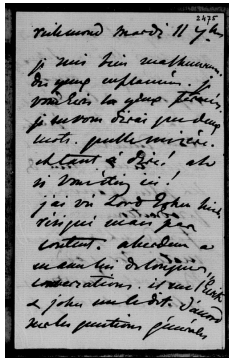 2475
richmond mardi 11 7bre
je suis bien malheureux
des yeux enflammés je
voudrais les yeux fermés
je ne vous dirais que deux
mots quelle misère
et tant à dire! ah
si vous étiez ici!
j'ai vu Lord John
mais pas
content. aberdeen a
eu avec lui de longues
conversations. il me l'a dit
& john me le dit. d'accord
sur les questions générales